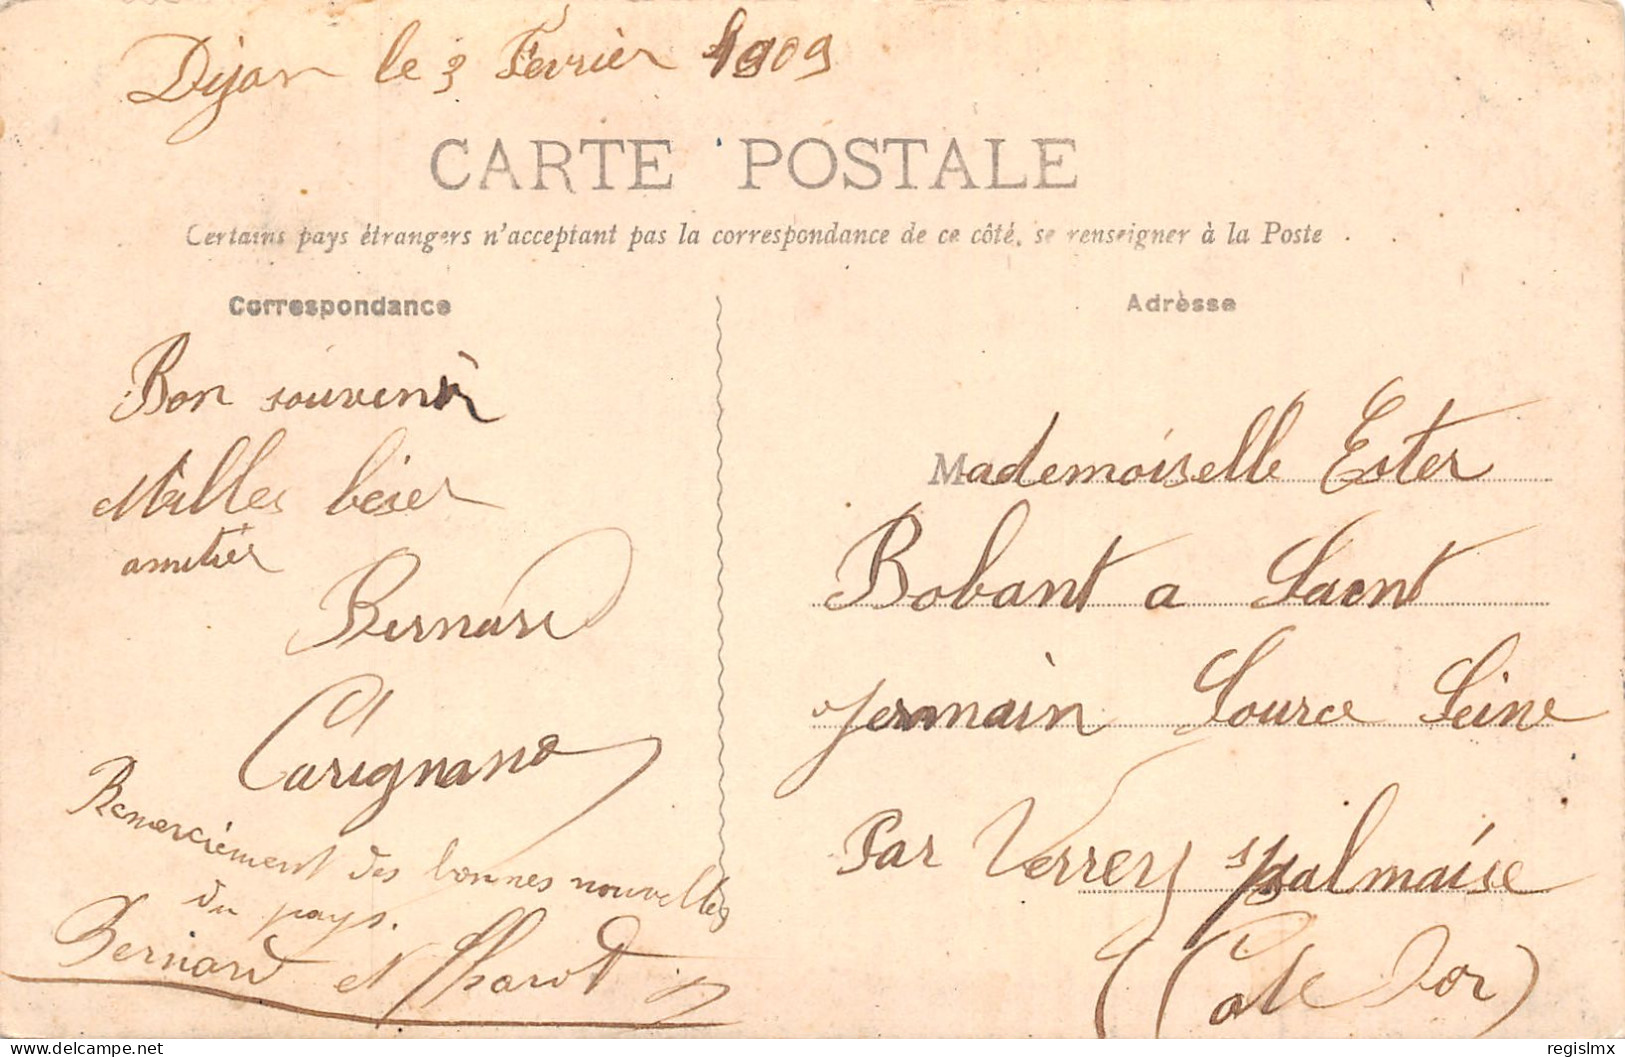 Dijon le 3 Février 1909
CARTE POSTALE
Certains pays étrangers n'acceptant pas la correspondance de ce côté, se renseigner à la Poste
Correspondance
Bon souvenir
Milles béser
amitiés
Bernard
Carignano
Remerciement des bonnes nouvelles
du pays.
Bernard et
Adrèsse
Mademoiselle Ester
Bobant a Saent
Jermain Source Seine
Par Verrery s/palmaise
(Cote Dor)
delcampe.net
regislmx